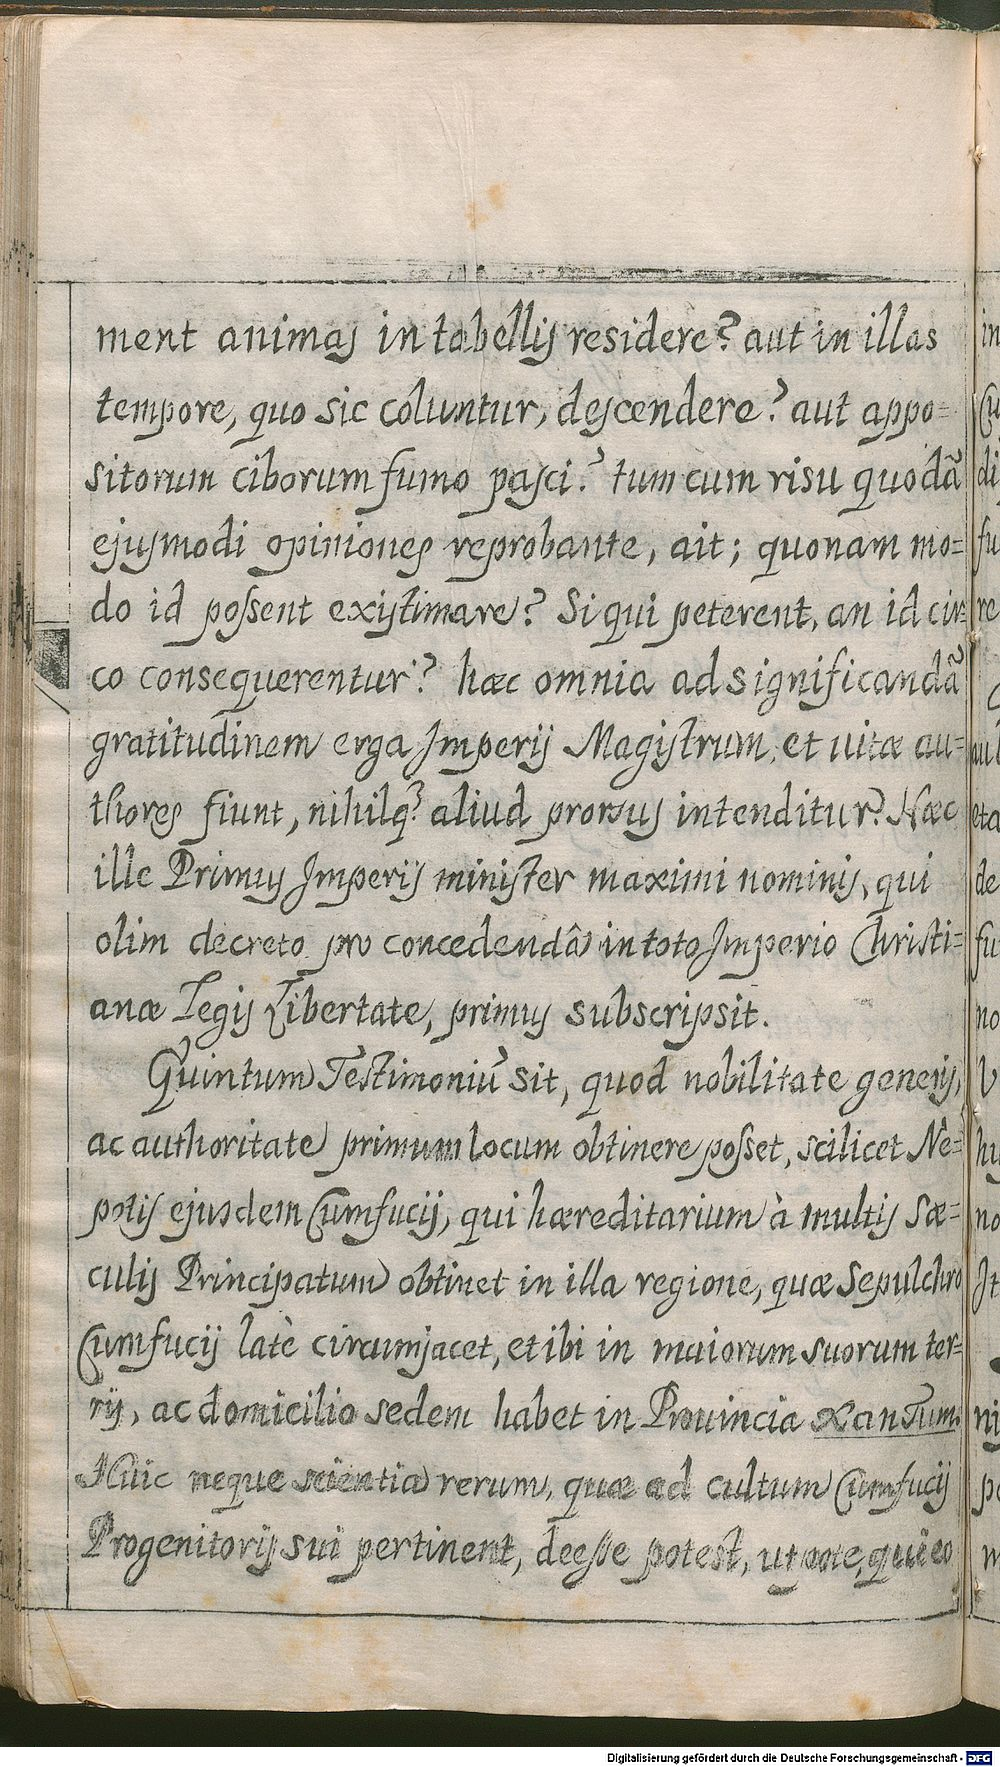 ment animas in tabellis residere? aut in illas
tempore, quo sic coluntur, descendere? aut appo=
sitorum ciborum fumo pasci? tum cum risu quodã
ejusmodi opiniones reprobante, ait; quonam mo=
do id possent existimare? Si qui peterent, an id cir=
co consequerentur? hæc omnia ad significandã
gratitudinem erga Imperij Magistrum, et vitæ au=
thores fiunt, nihilq? aliud prorsus intenditur? Hæc
ille Primus Imperij minister maximi nominis, qui
olim decreto pro concedendâ in toto Imperio Christi=
anæ Legis Libertate, primus subscripsit.
Quintum Testimoniũ sit, quod nobilitate generis,
ac authoritate primum locum obtinere posset, scilicet Ne=
potis ejusdem Cumfucij, qui hæreditarium à multis Sæ=
culis Principatum obtinet in illa regione, quæ Sepulchro
Cumfucij latè circumjacet, et ibi in maiorum suorum ter=
rij, ac domicilio sedem habet in Prouincia Xan Tum.
Huic neque scientia rerum, quæ ad cultum Cumfucij
Progenitoris sui pertinent, deesse potest, ut pote, qui eo
in
Cu
di
fu
re
aul
eta
de
fu
no
V
hy
no
It
ni
Digitalisierung gefördert durch die Deutsche Forschungsgemeinschaft - DFG